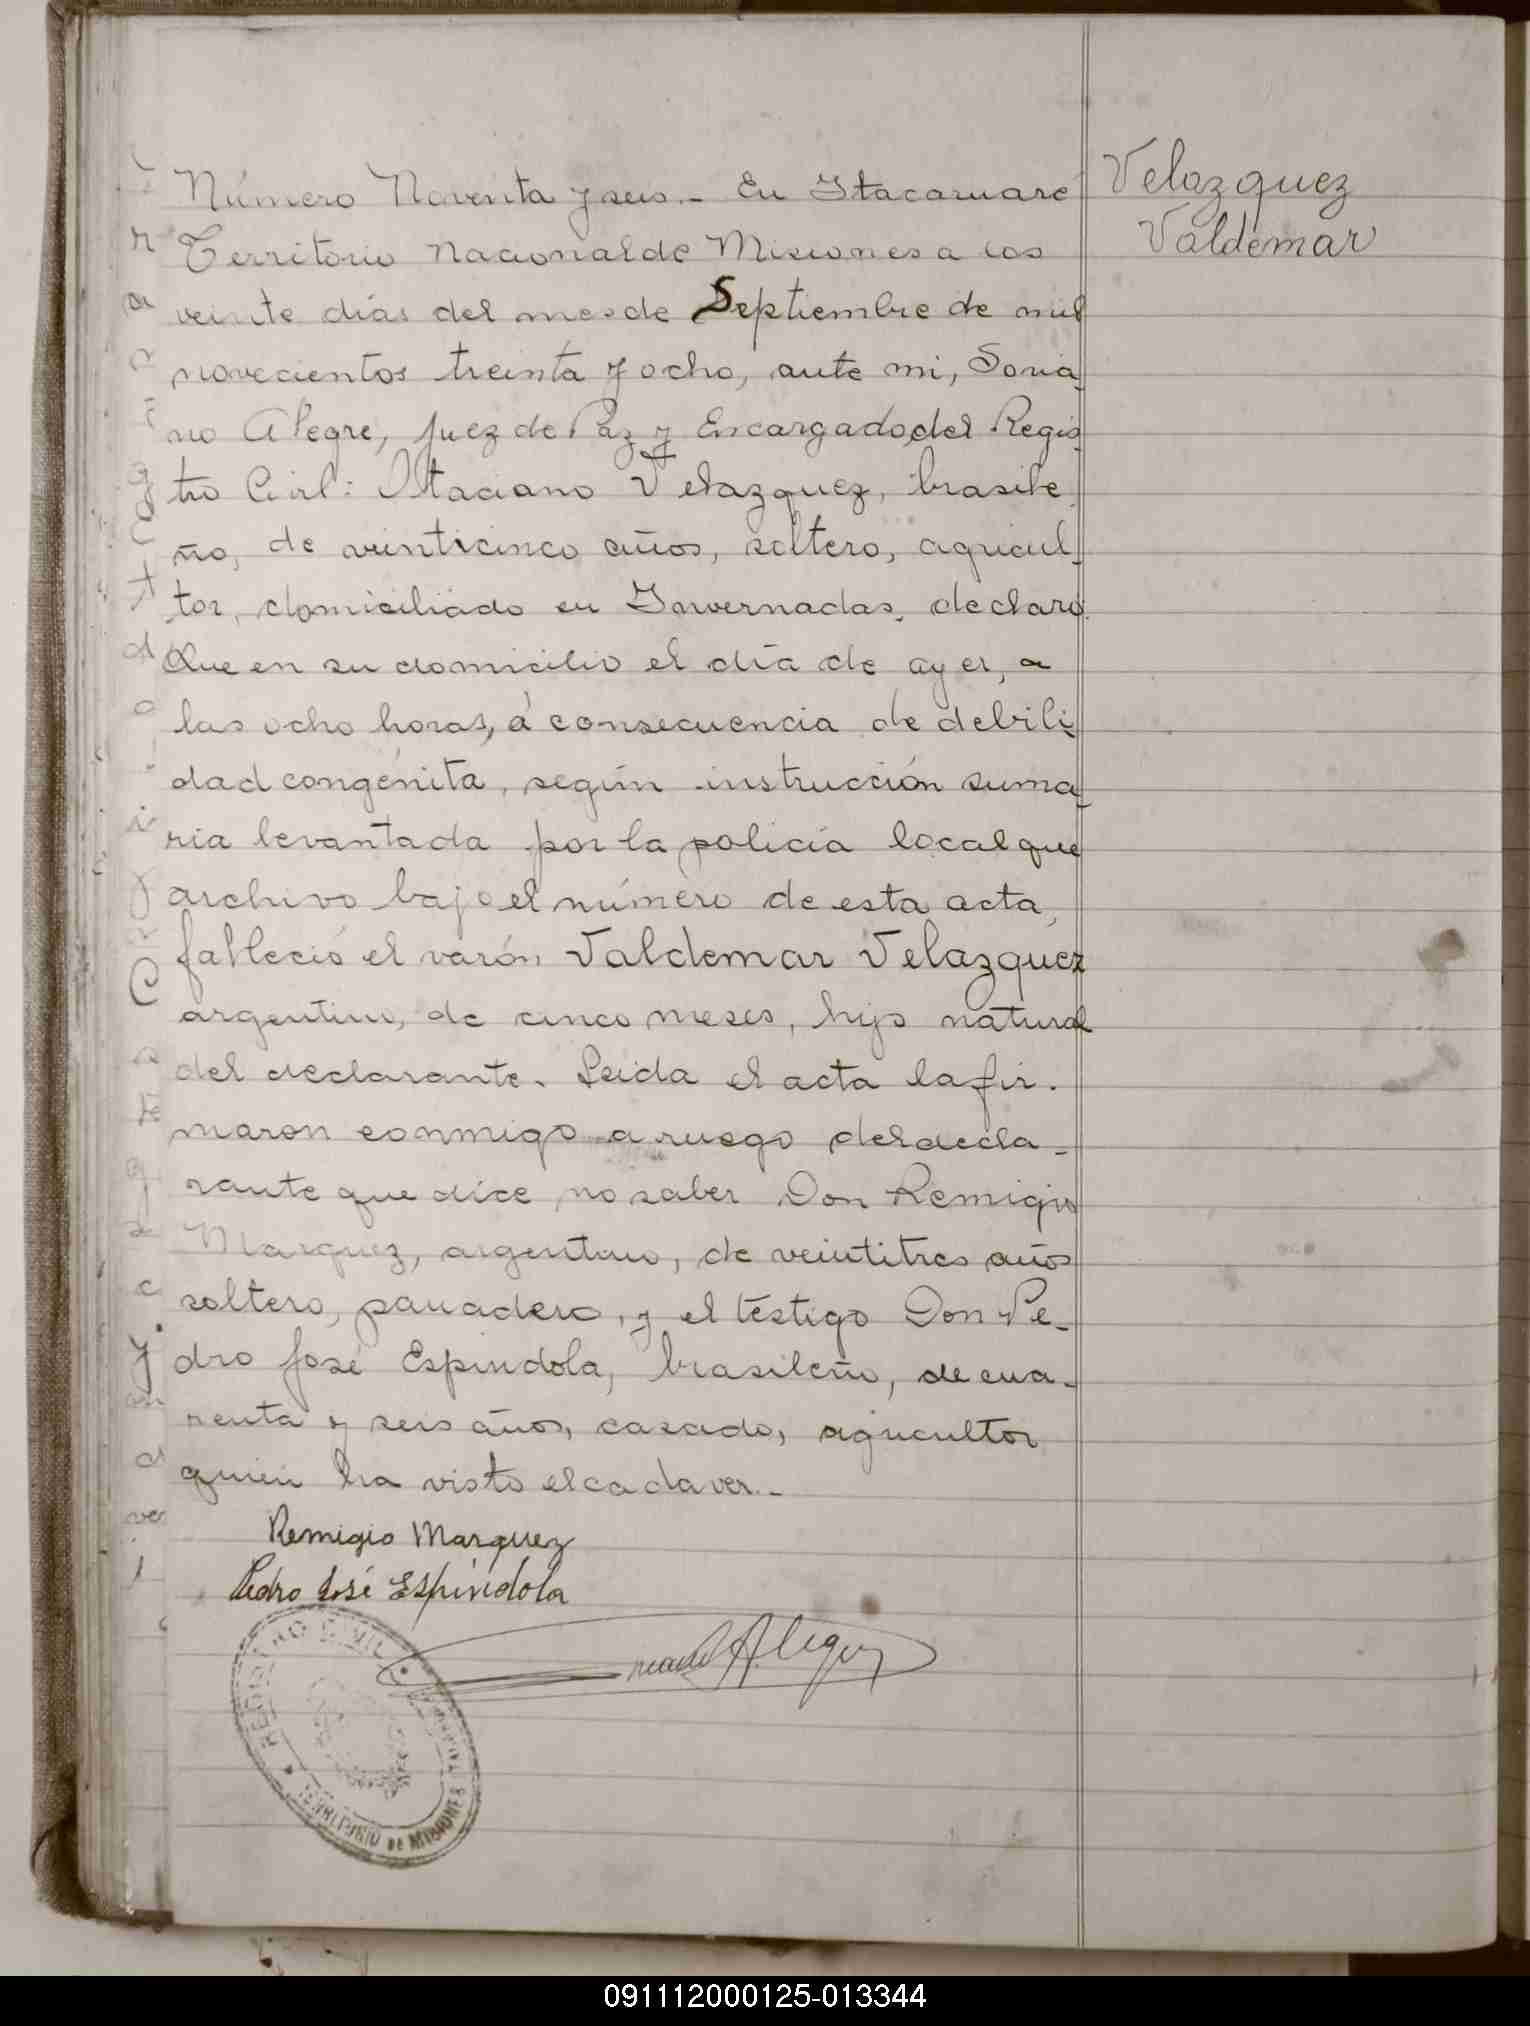 Velazquez
Valdemar
Número Noventa y seis.- En Itacaruaré
Territorio Nacional de Misiones a los
veinte días del mes de Septiembre de mil
novecientos treinta y ocho, ante mi, Soria
no Alegre, Juez de Paz y Encargado del Regis
tro Civil: Otaciano Velazquez, brasile
ño, de veinticinco años, soltero, agricul_
tor, domiciliado en Invernadas, declaró:
Que en su domicilio el día de ayer, a
las ocho horas, á consecuencia de debili_
dad congénita, según instrucción suma_
ria levantada por la policía local que
archivo bajo el número de esta acta,
falleció el varón Valdemar Velazquez
argentino, de cinco meses, hijo natural
del declarante. Leida el acta la fir.
maron conmigo a ruego del decla_
rante que dice no saber Don Remigio
Marquez, argentino, de veintitres años
soltero, panadero, y el testigo Don Pe_
dro José Espindola, brasileño, de cua_
renta y seis años, casado, agricultor
quien ha visto el cadaver.-
Remigio Marquez
Pedro José Espíndola
Alegre
REGISTRO CIVIL
TERRITORIO DE MISIONES
091112000125-013344